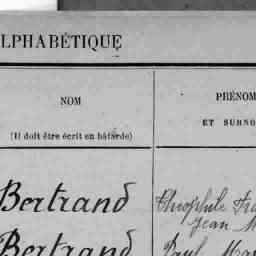 LPHABÉTIQUE
NOM
(Il doit être écrit en bâtarde)
PRÉNOM
ET SURNO
Bertrand
Théophile Fra
Jean M
Bertrand
Paul Mar